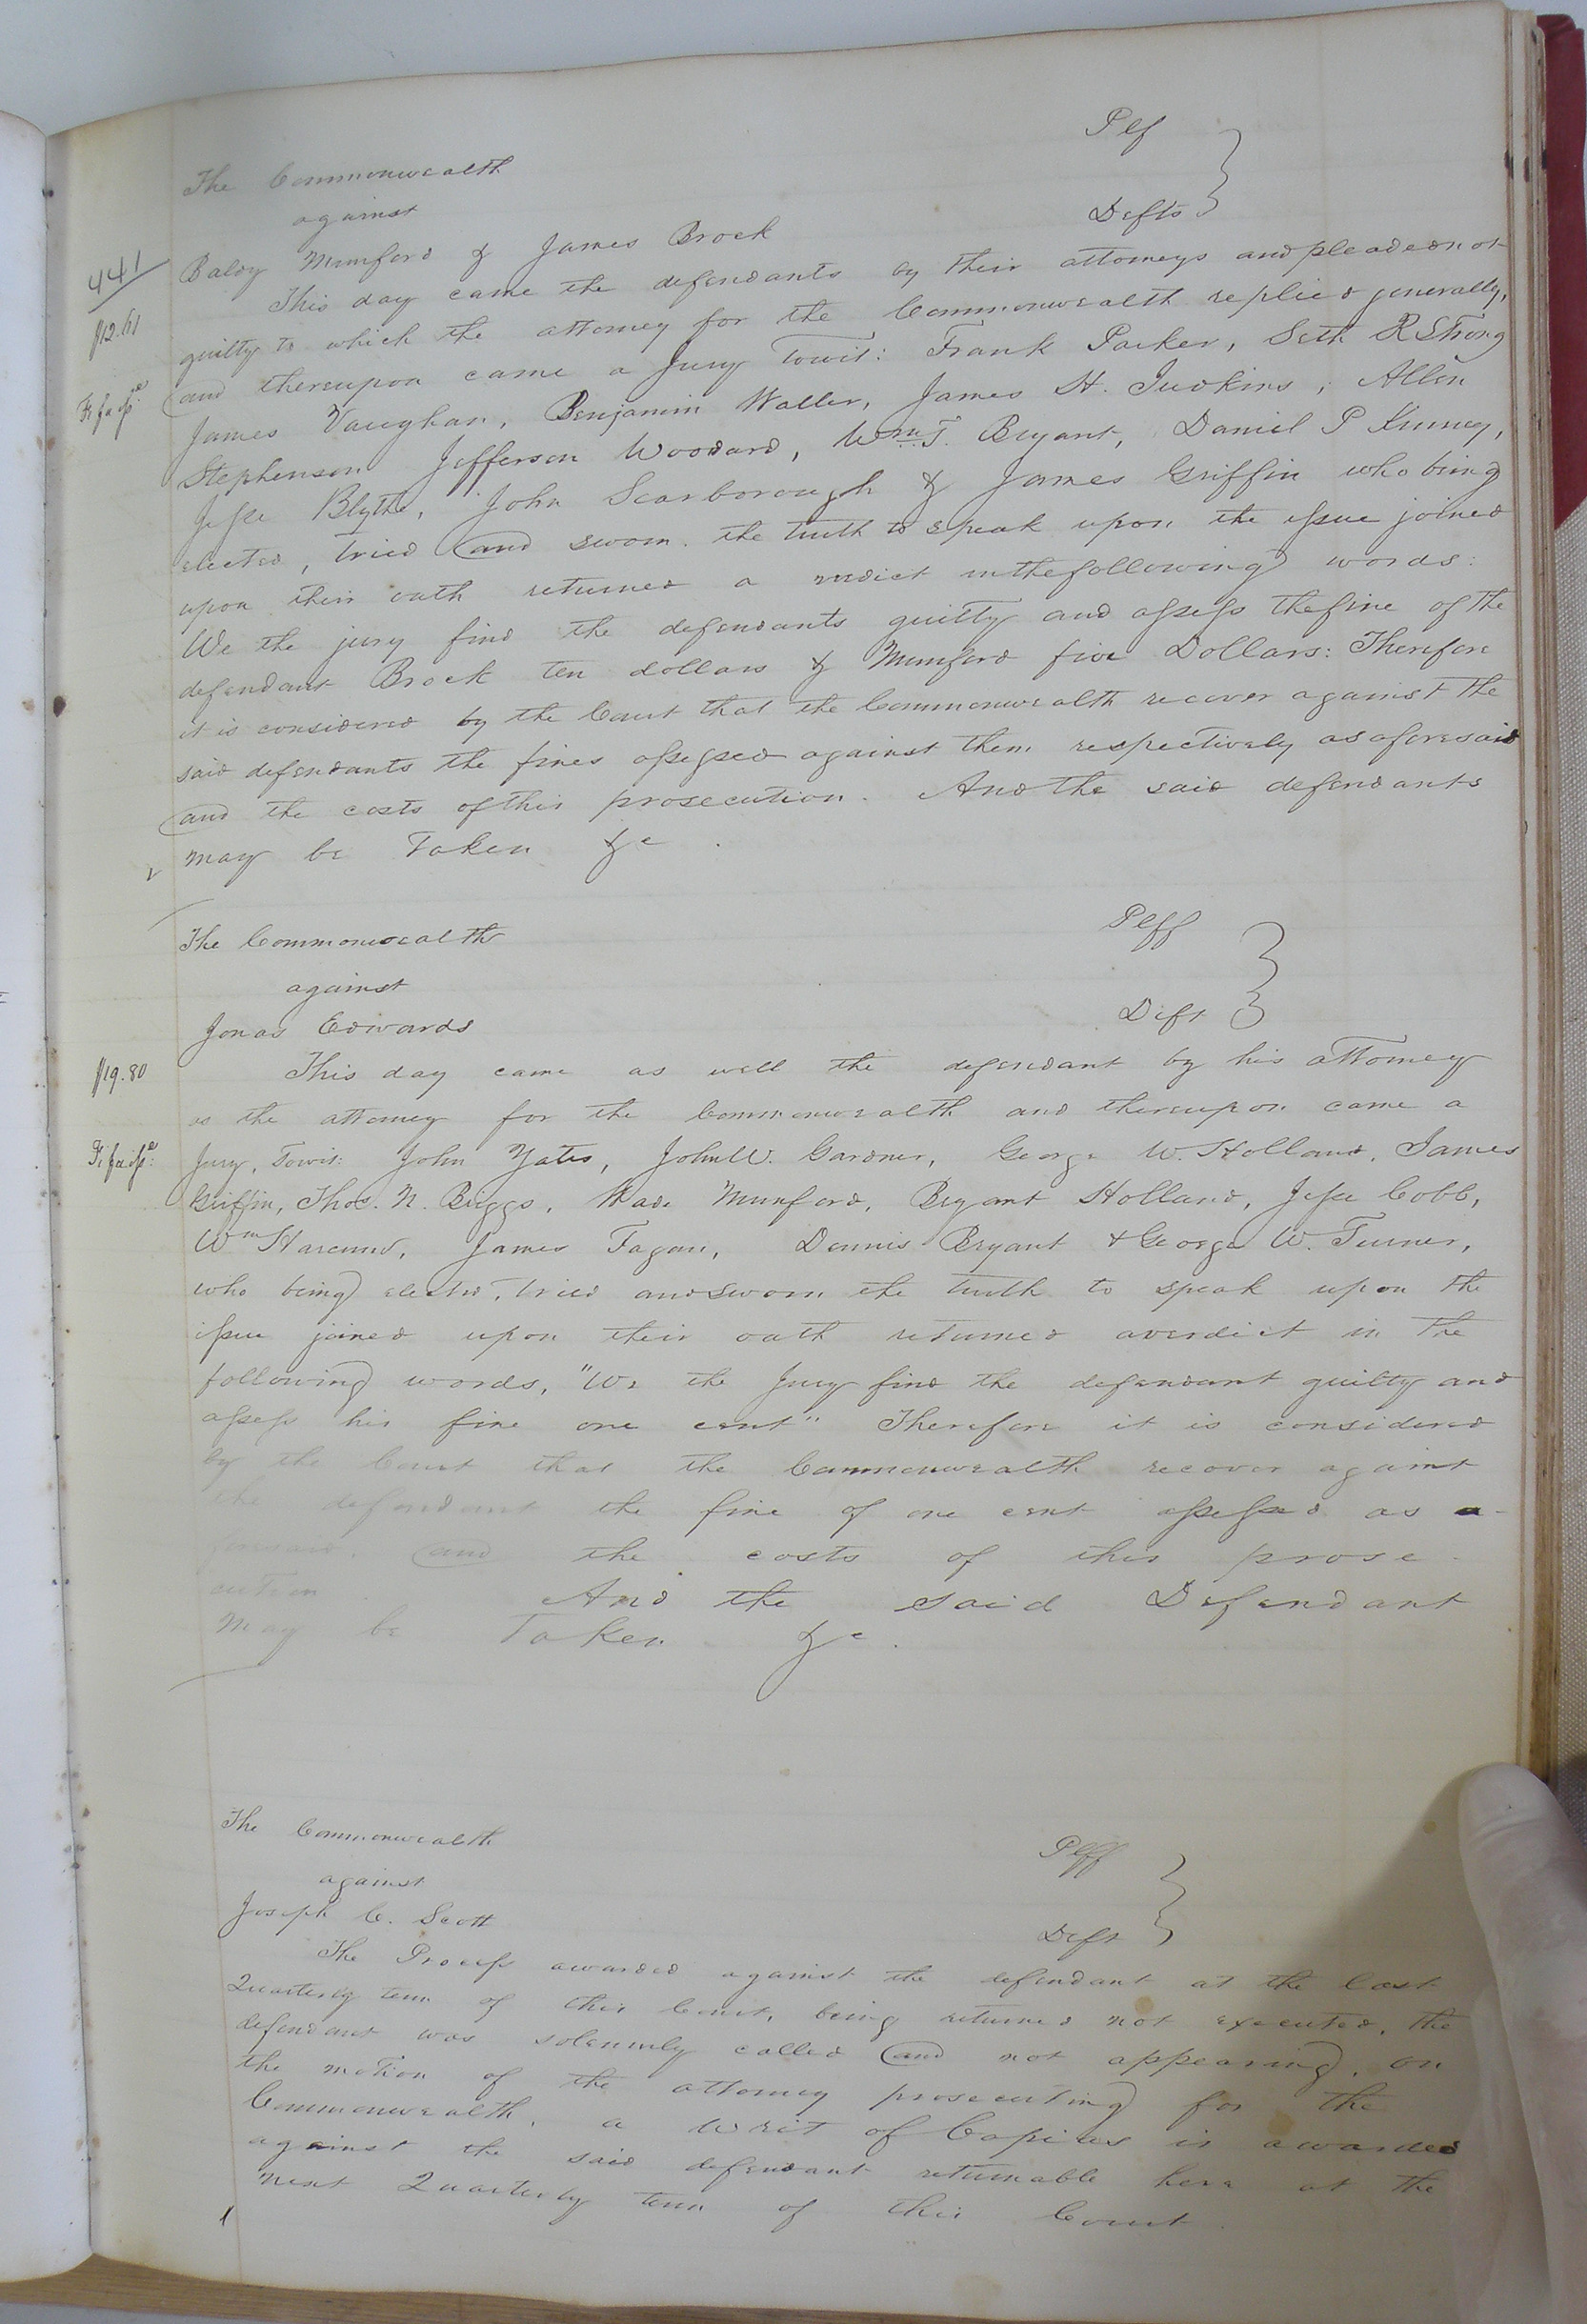 Plf
The Commonwealth
against
Defts
Baldy Mumford & James Brock
441
This day came the defendants by their attorneys and pleaded not
$12.61
guilty to which the attorney for the Commonwealth replied generally,
and thereupon came a Jury Towit: Frank Parker, Seth R Strong
Fi fa issd
James Vaughan, Benjamin Waller, James H. Judkins, Allen
Stephenson Jefferson Woodard, Wm T. Bryant, Daniel P Kinney,
Jesse Blythe, John Scarborough & James Griffin who being
elected, tried and sworn the truth to speak upon the issue joined
upon their oath returned a verdict in the following words:
We the jury find the defendants guilty and assess the fine of the
defendant Brock ten dollars & Mumford five Dollars: Therefore
it is considered by the Court that the Commonwealth recover against the
said defendants the fines assessed against them respectively as aforesaid
and the costs of this prosecution. And the said defendants
may be Taken &c.
The Commonwealth
Plff
against
Deft
Jonas Edwards
$19.80
This day came as well the defendant by his attorney
as the attorney for the Commonwealth and thereupon came a
Fi fa issd:
Jury, Towit: John Yates, John W. Gardner, George W. Holland, James
Griffin, Thos. N. Briggs, Wade Munford, Bryant Holland, Jesse Cobb,
Wm Harcum, James Fagan, Dennis Bryant & George W. Turner,
who being elected, tried and sworn the truth to speak upon the
issue joined upon their oath returned a verdict in the
following words, "We the Jury find the defendant guilty and
assess his fine one cent" Therefore it is considered
by the Court that the Commonwealth recover against
the defendant the fine of one cent assessed as a-
foresaid, and the costs of this prose-
cution And the said Defendant
may be Taken &c.
The Commonwealth
Plff
against
Joseph C. Scott
Deft
The Process awarded against the defendant at the last
Quarterly term of this Court, being returned not executed, the
defendant was solemnly called and not appearing, on
the motion of the attorney prosecuting for the
Commonwealth, a Writ of Capias is awarded
against the said defendant returnable here at the
next Quarterly term of this Court.